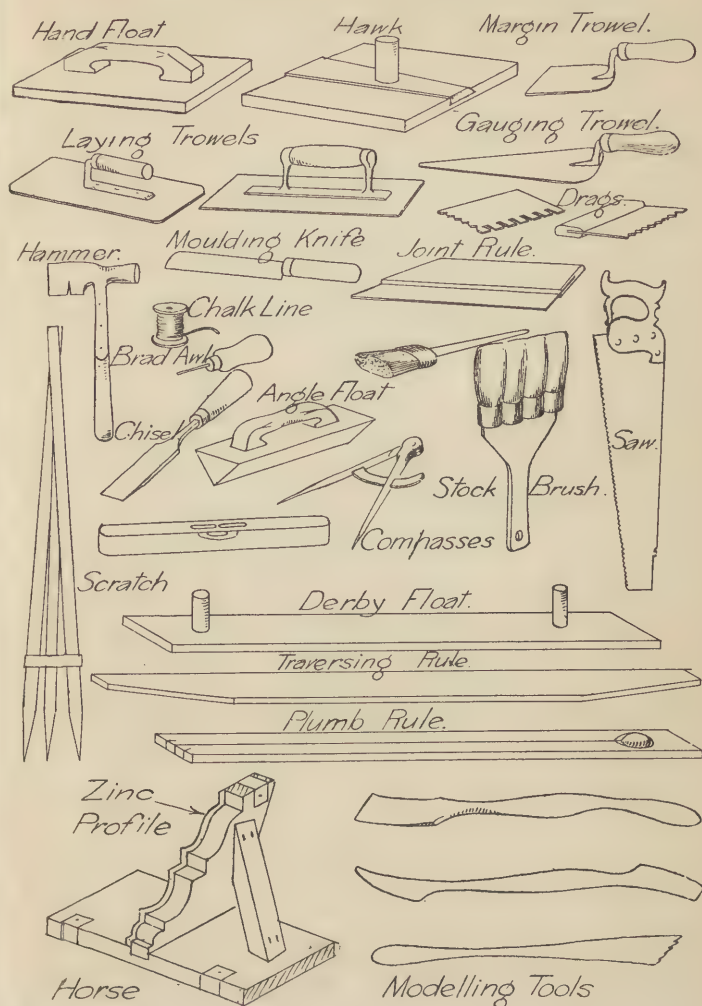 Hand Float
Hawk
Margin Trowel.
Laying Trowels
Gauging Trowel.
Drags.
Hammer.
Moulding Knife
Joint Rule.
Chalk Line
Brad Awl
Angle Float
Chisel
Saw.
Stock Brush.
Compasses
Scratch
Derby Float.
Traversing Rule
Plumb Rule.
Zinc
Profile
Horse
Modelling Tools